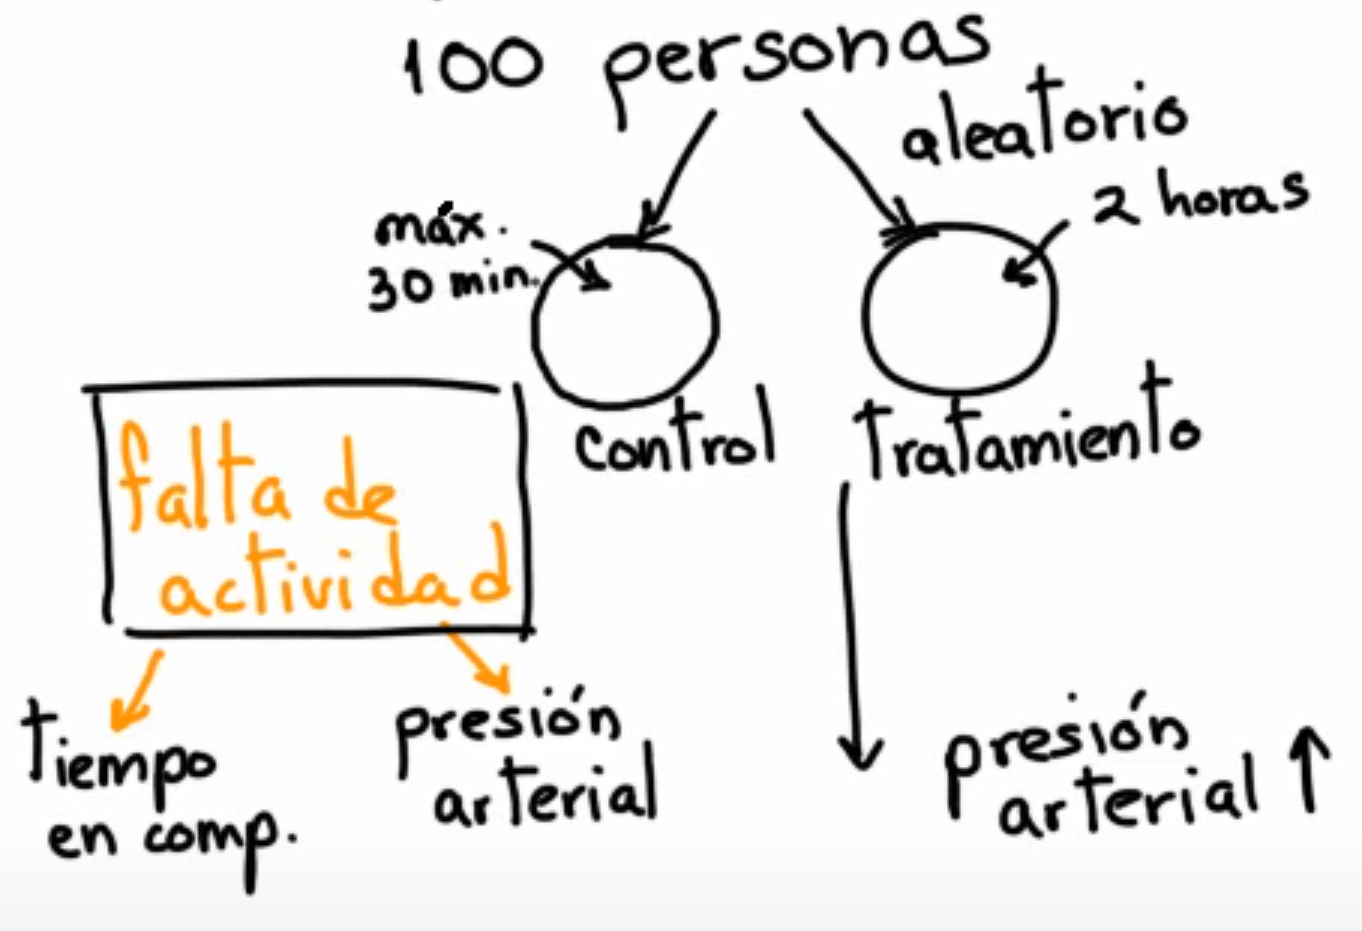 100 personas
aleatorio
máx.
30 min.
2 horas
control
tratamiento
falta de
actividad
tiempo
en comp.
presión
arterial
presión
arterial ↑